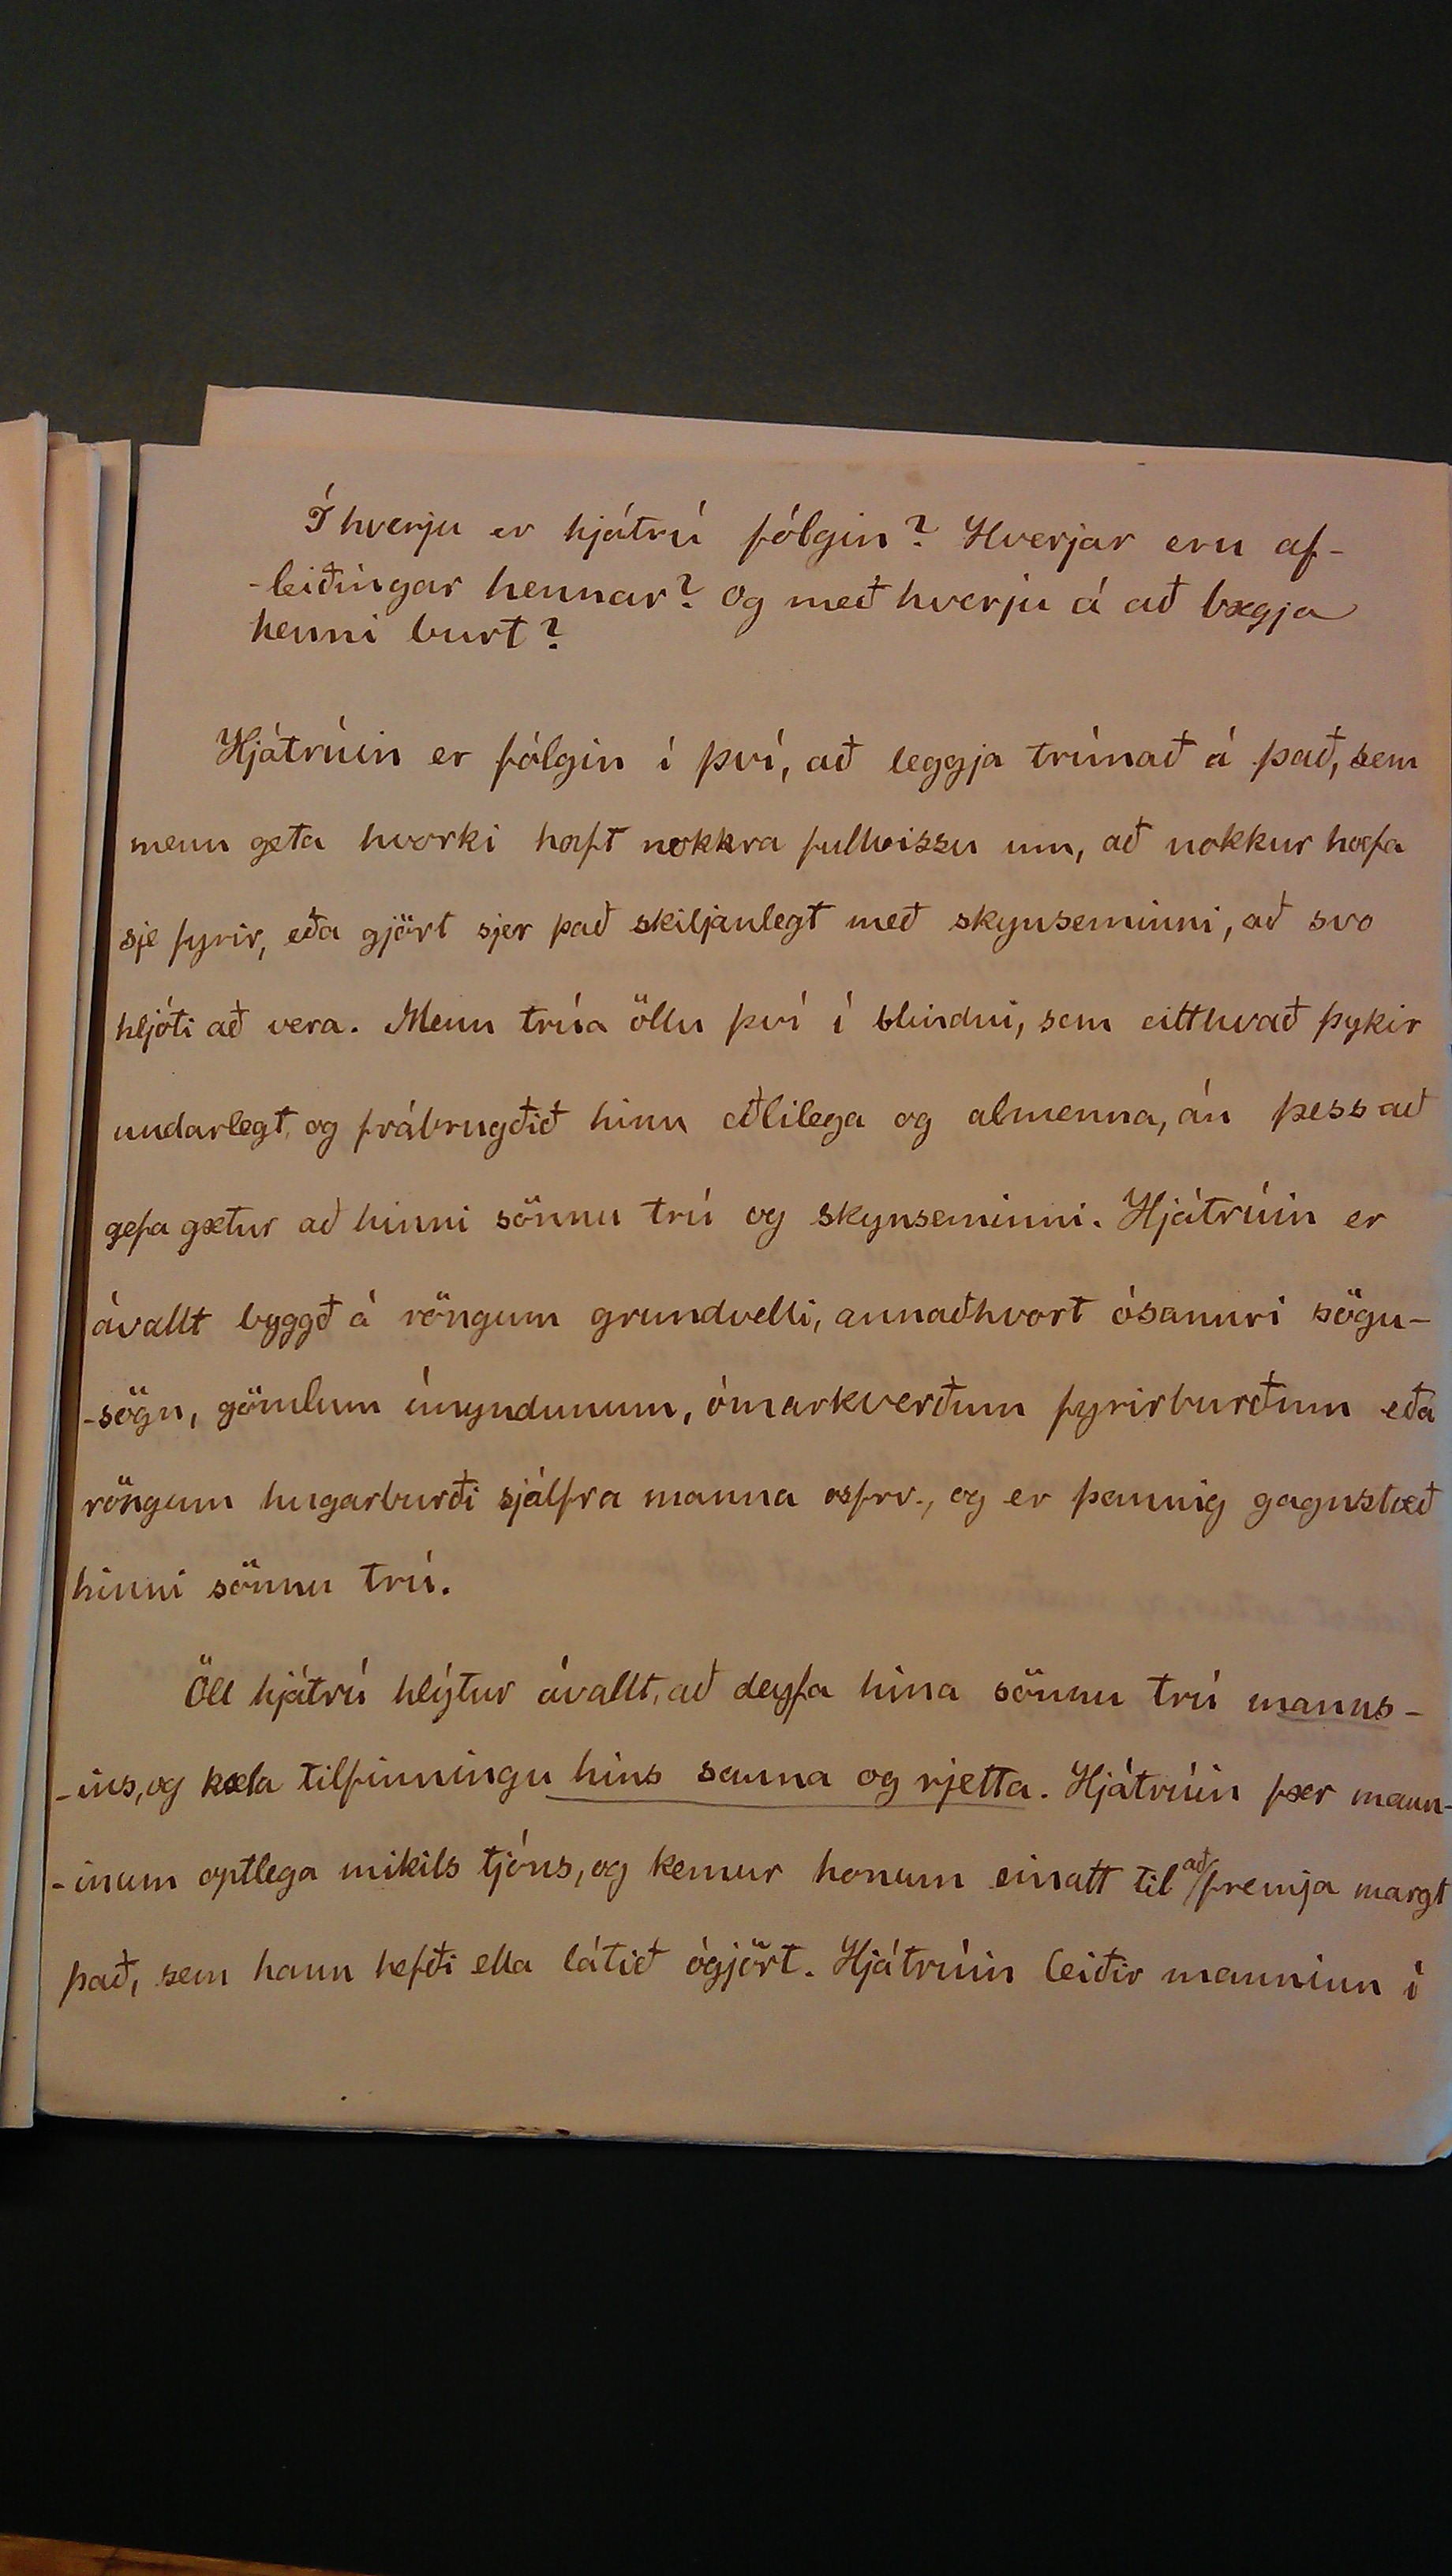 Í hverju er hjátrú fólgin? Hverjar eru af-
-leiðingar hennar? og með hverju á að bægja
henni burt?
Hjátrúin er fólgin í því, að leggja trúnað á það, sem
menn geta hvorki haft nokkra fullvissu um, að nokkur hæfa
sje fyrir, eða gjört sjer það skiljanlegt með skynseminni, að svo
hljóti að vera. Menn trúa öllu því í blindni, sem eitthvað þykir
undarlegt, og frábrugðið hinu eðlilega og almenna, án þess að
gefa gætur að hinni sönnu trú og skynseminni. Hjátrúin er
ávallt byggð á röngum grundvelli, annaðhvort ósannri sögu-
-sögn, gömlum ímyndunum, ómarkverðum fyrirburðum eða
röngum hugarburði sjálfra manna osfrv., og er þannig gagnstæð
hinni sönnu trú.
Öll hjátrú hlýtur ávallt, að deyfa hina sönnu trú manns-
-ins, og kæla tilfinningu hins sanna og rjetta. Hjátrúin fær mann-
-inum optlega mikils tjóns, og kemur honum einatt til að fremja margt
það, sem hann hefði ella látið ógjört. Hjátrúin leiðir manninn í